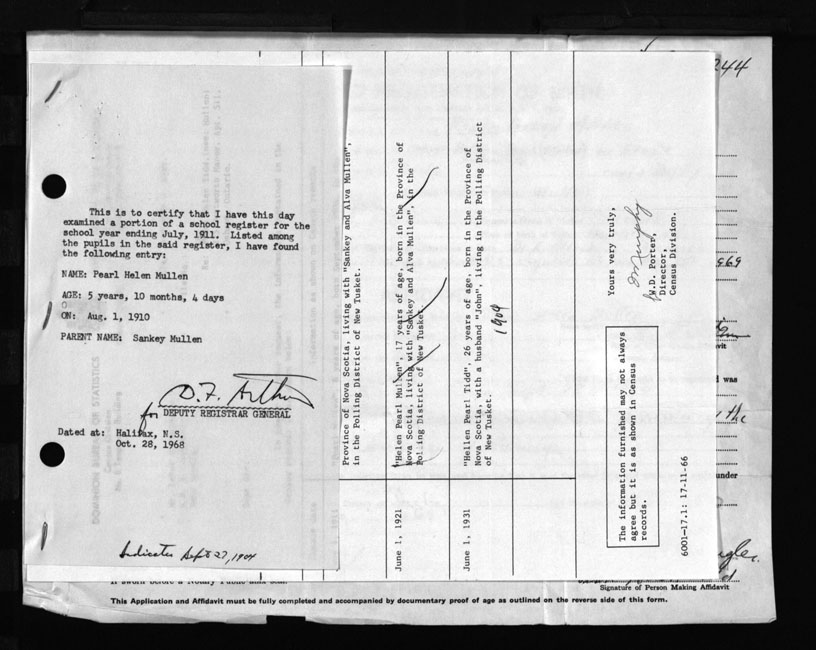 This is to certify that I have this day
examined a portion of a school register for the
school year ending July, 1911. Listed among
the pupils in the said register, I have found
the following entry:
NAME: Pearl Helen Mullen
AGE: 5 years, 10 months, 4 days
ON: Aug. 1, 1910
PARENT NAME: Sankey Mullen
D.F. Arthur
for DEPUTY REGISTRAR GENERAL
Dated at: Halifax, N.S.
Oct. 28, 1968
Indicates Sept 27, 1904
Province of Nova Scotia, living with "Sankey and Alva Mullen",
in the Polling District of New Tusket.
June 1, 1921
"Helen Pearl Mullen", 17 years of age, born in the Province of
Nova Scotia, living with "Sankey and Alva Mullen", in the
Polling District of New Tusket.
June 1, 1931
"Hellen Pearl Tidd", 26 years of age, born in the Province of
Nova Scotia, with a husband "John", living in the Polling District
of New Tusket.
1904
Yours very truly,
for W.D. Porter,
Director,
Census Division.
The information furnished may not always
agree but it is as shown in Census
records.
6001-17.1: 17-11-66
244
969
vit
was
the
under
Signature of Person Making Affidavit
This Application and Affidavit must be fully completed and accompanied by documentary proof of age as outlined on the reverse side of this form.